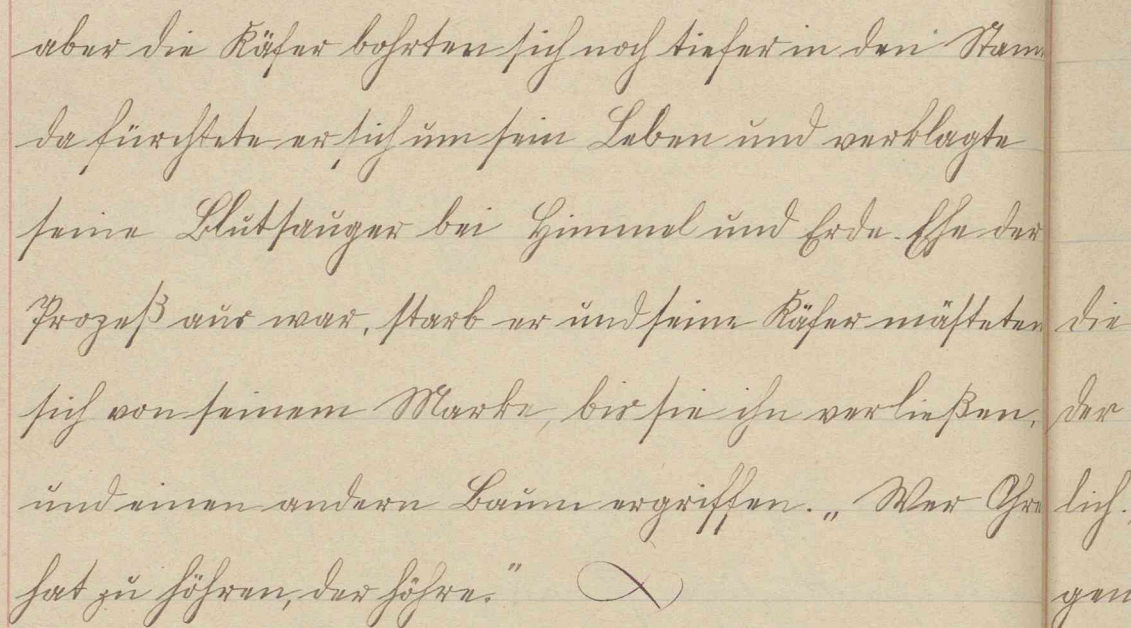 aber die Käfer bohrten sich noch tiefer in den Stam
da fürchtete er sich um sein Leben und verklagte
seine Blutsauger bei Himmel und Erde. Ehe der
Prozeß aus war, starb er und seine Käfer mästeten die
sich von seinem Marke, bis sie ihn verließen, der
und einen andern Baum ergriffen. „Wer Ohre lich.
hat zu höhren, der höhre.“ gen